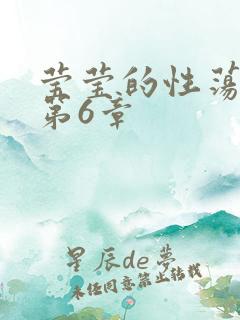 莹莹的性荡
第6章
星辰de梦
未经同意禁止转载